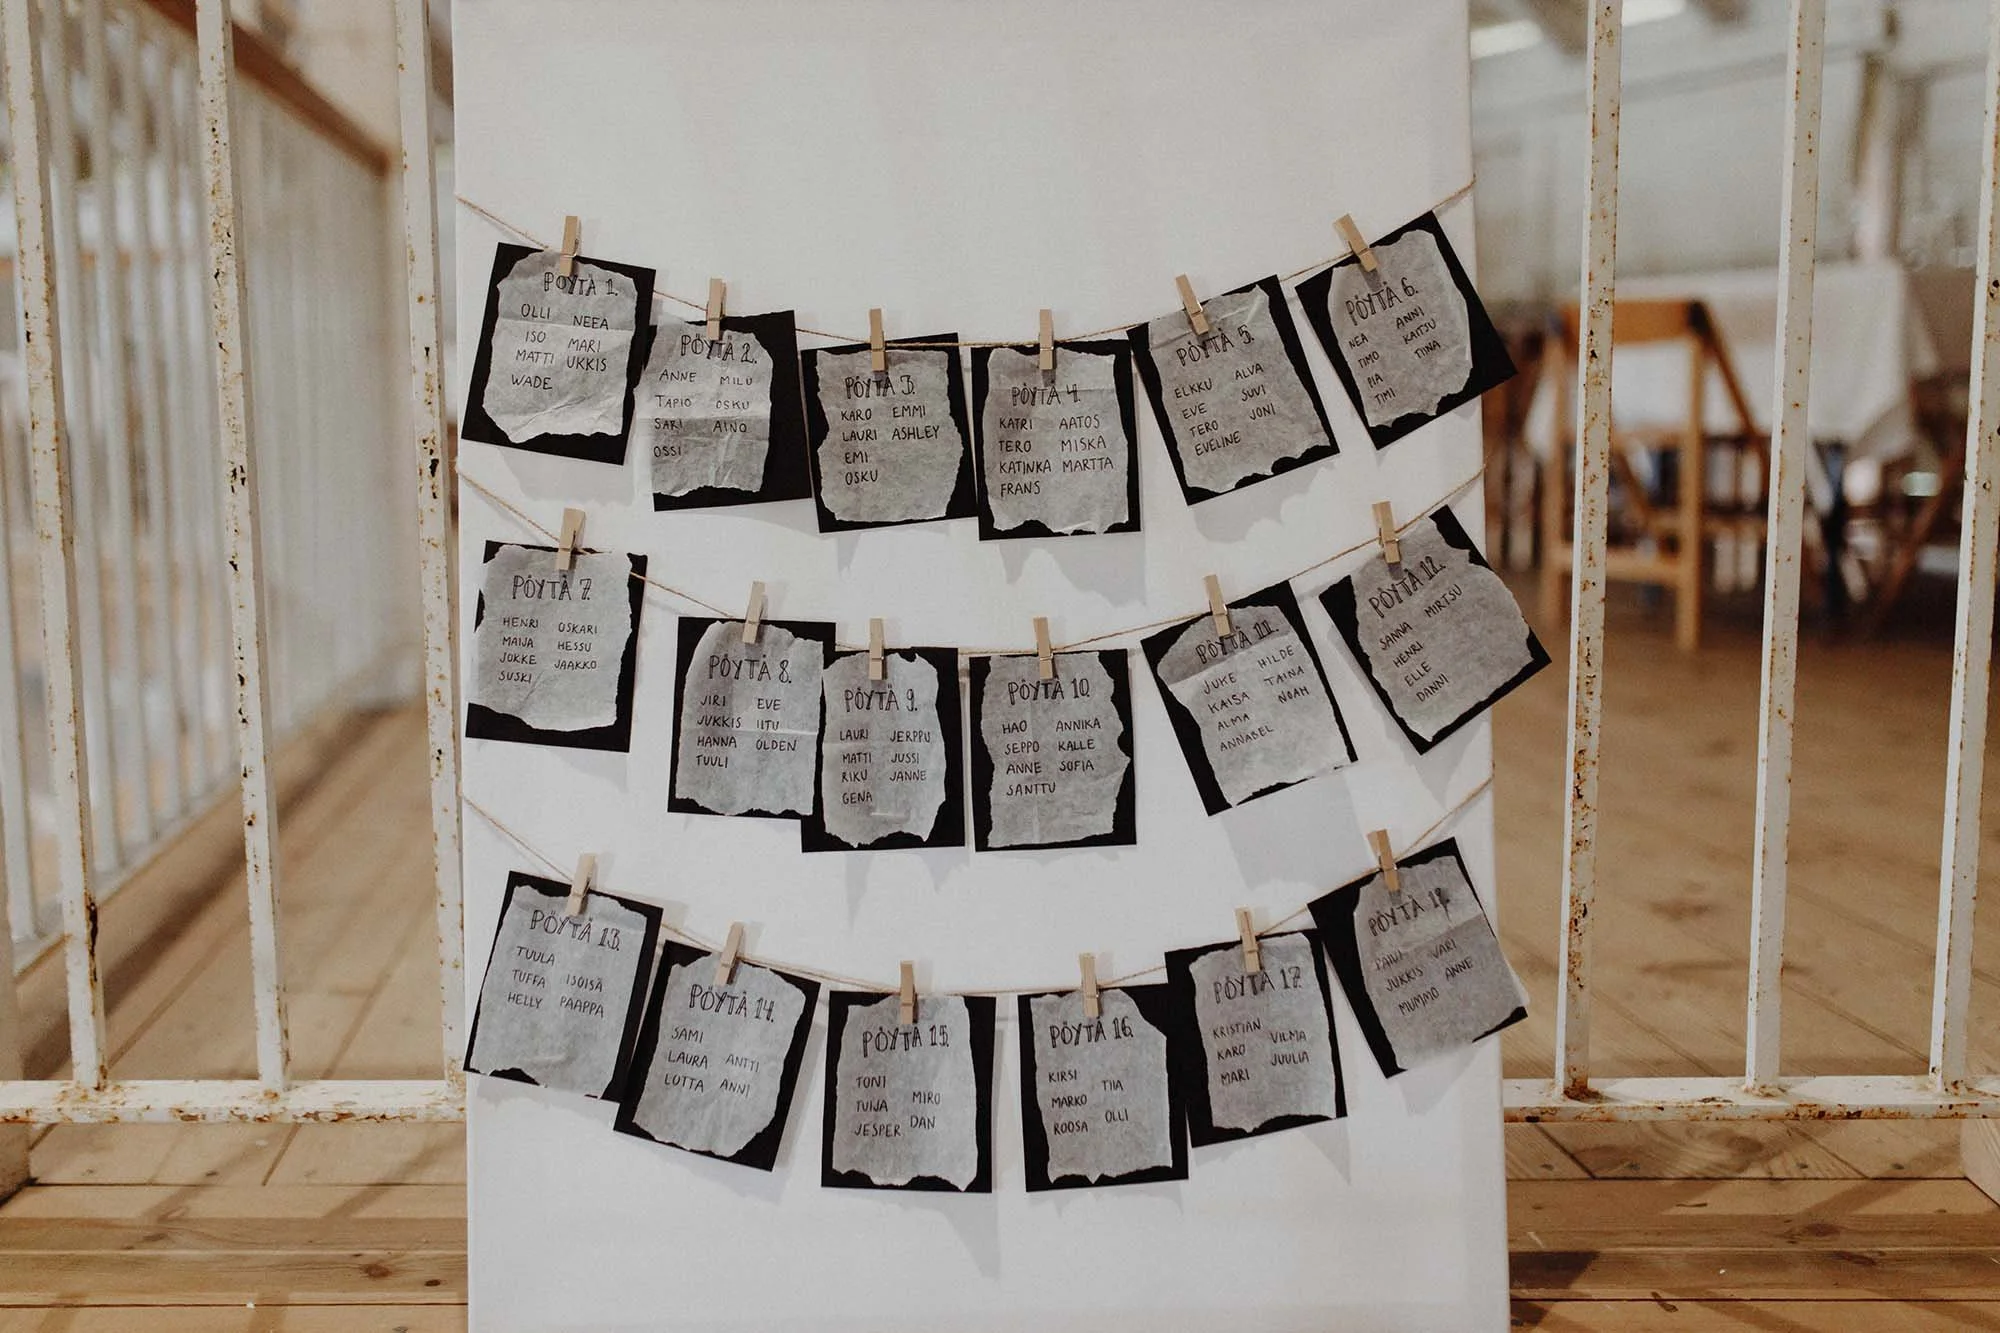 PÖYTÄ 1.
OLLI NEEA
ISO MARI
MATTI UKKIS
WADE
PÖYTÄ 2.
ANNE MILU
TAPIO OSKU
SARI AINO
OSSI
PÖYTÄ 3.
KARO EMMI
LAURI ASHLEY
EMI
OSKU
PÖYTÄ 4.
KATRI AATOS
TERO MISKA
KATINKA MARTTA
FRANS
PÖYTÄ 5.
ELKKU ALVA
EVE SUVI
TERO JONI
EVELINE
PÖYTÄ 6.
NEA ANNI
TIMO KAITSU
PIA TIINA
TIMI
PÖYTÄ 7.
HENRI OSKARI
MAIJA HESSU
JOKKE JAAKKO
SUSKI
PÖYTÄ 8.
JIRI EVE
JUKKIS IITU
HANNA OLDEN
TUULI
PÖYTÄ 9.
LAURI JERPPU
MATTI JUSSI
RIKU JANNE
GENA
PÖYTÄ 10.
HAO ANNIKA
SEPPO KALLE
ANNE SOFIA
SANTTU
PÖYTÄ 11.
JUKE HILDE
KAISA TAINA
ALMA NOAH
ANNABEL
PÖYTÄ 12.
SANNA MIRTSU
HENRI
ELLE
DANNI
PÖYTÄ 13.
TUULA
TUFFA ISOISÄ
HELLY PAAPPA
PÖYTÄ 14.
SAMI
LAURA ANTTI
LOTTA ANNI
PÖYTÄ 15.
TONI
TUIJA MIRO
JESPER DAN
PÖYTÄ 16.
KIRSI TIIA
MARKO OLLI
ROOSA
PÖYTÄ 17.
KRISTIAN VILMA
KARO JUULIA
MARI
PÖYTÄ 18.
PAIVI VARI
JUKKIS ANNE
MUMMO